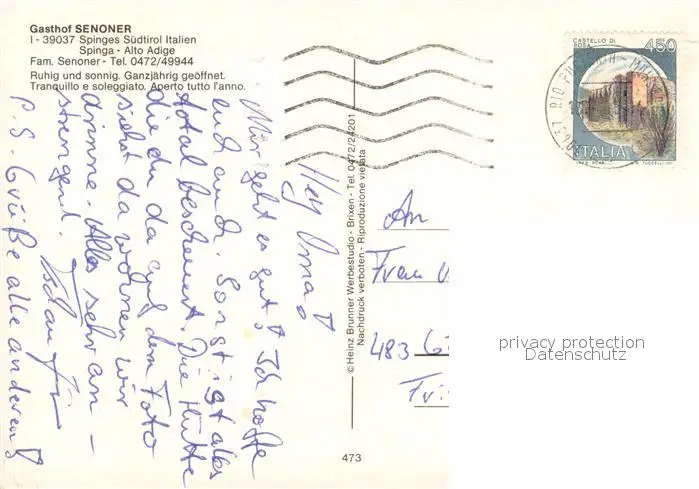 Gasthof SENONER
I - 39037 Spinges Südtirol Italien
Spinga - Alto Adige
Fam. Senoner - Tel. 0472/49944
Ruhig und sonnig. Ganzjährig geöffnet.
Tranquillo e soleggiato. Aperto tutto l'anno.
Hey Oma!
Mir geht es gut! Ich hoffe
euch auch. Sonst ist alles
total bescheuert. Die Hütte
die du da auf dem Foto
siehst da wohnen wir
drinne. Alles sehr an-
strengend. Tschau
P.S. Grüße alle anderen!
© Heinz Brunner Werbestudio - Brixen - Tel. 0472/24201
Nachdruck verboten - Riproduzione vietata
473
CASTELLO DI
BOSA
450
ITALIA
An
Frau
483
privacy protection
Datenschutz